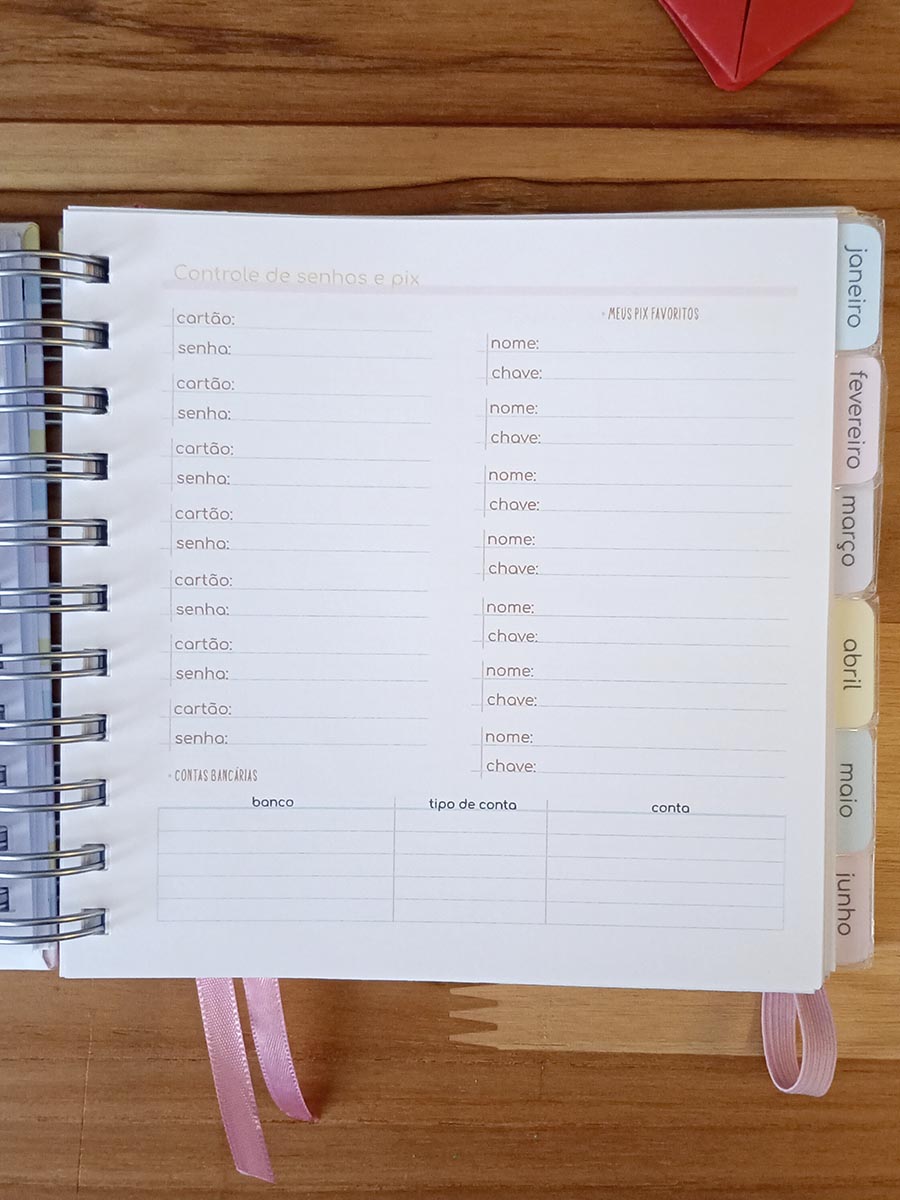 Controle de senhas e pix
cartão:
senha:
cartão:
senha:
cartão:
senha:
cartão:
senha:
cartão:
senha:
cartão:
senha:
cartão:
senha:
• MEUS PIX FAVORITOS
nome:
chave:
nome:
chave:
nome:
chave:
nome:
chave:
nome:
chave:
nome:
chave:
nome:
chave:
• CONTAS BANCÁRIAS
banco tipo de conta conta
janeiro
fevereiro
março
abril
maio
junho